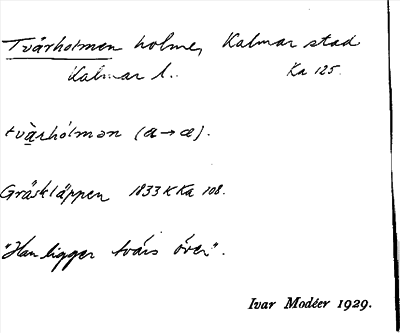 Tvärholmen holme, Kalmar stad
Kalmar l.. Ka 125.
tvä̀rhólmən (a→æ).
Gräskläppen 1833 K Ka 108.
"Han ligger tvärs över".
Ivar Modéer 1929.